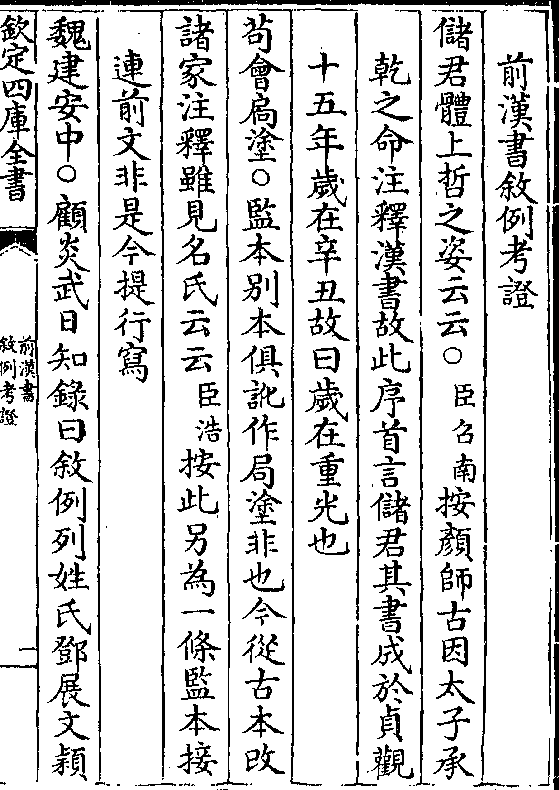 前漢書敘例考證
儲君體上哲之姿云云○臣召南按顏師古因太子承
乾之命注釋漢書故此序首言儲君其書成於貞觀
十五年歲在辛丑故曰歲在重光也
苟會扃塗○監本別本俱訛作局塗非也今從古本改
諸家注釋雖見名氏云云臣浩按此另為一條監本接
連前文非是今提行寫
魏建安中○顧炎武日知錄曰敘例列姓氏鄧展文穎
欽定四庫全書
前漢書
敘例考證
一